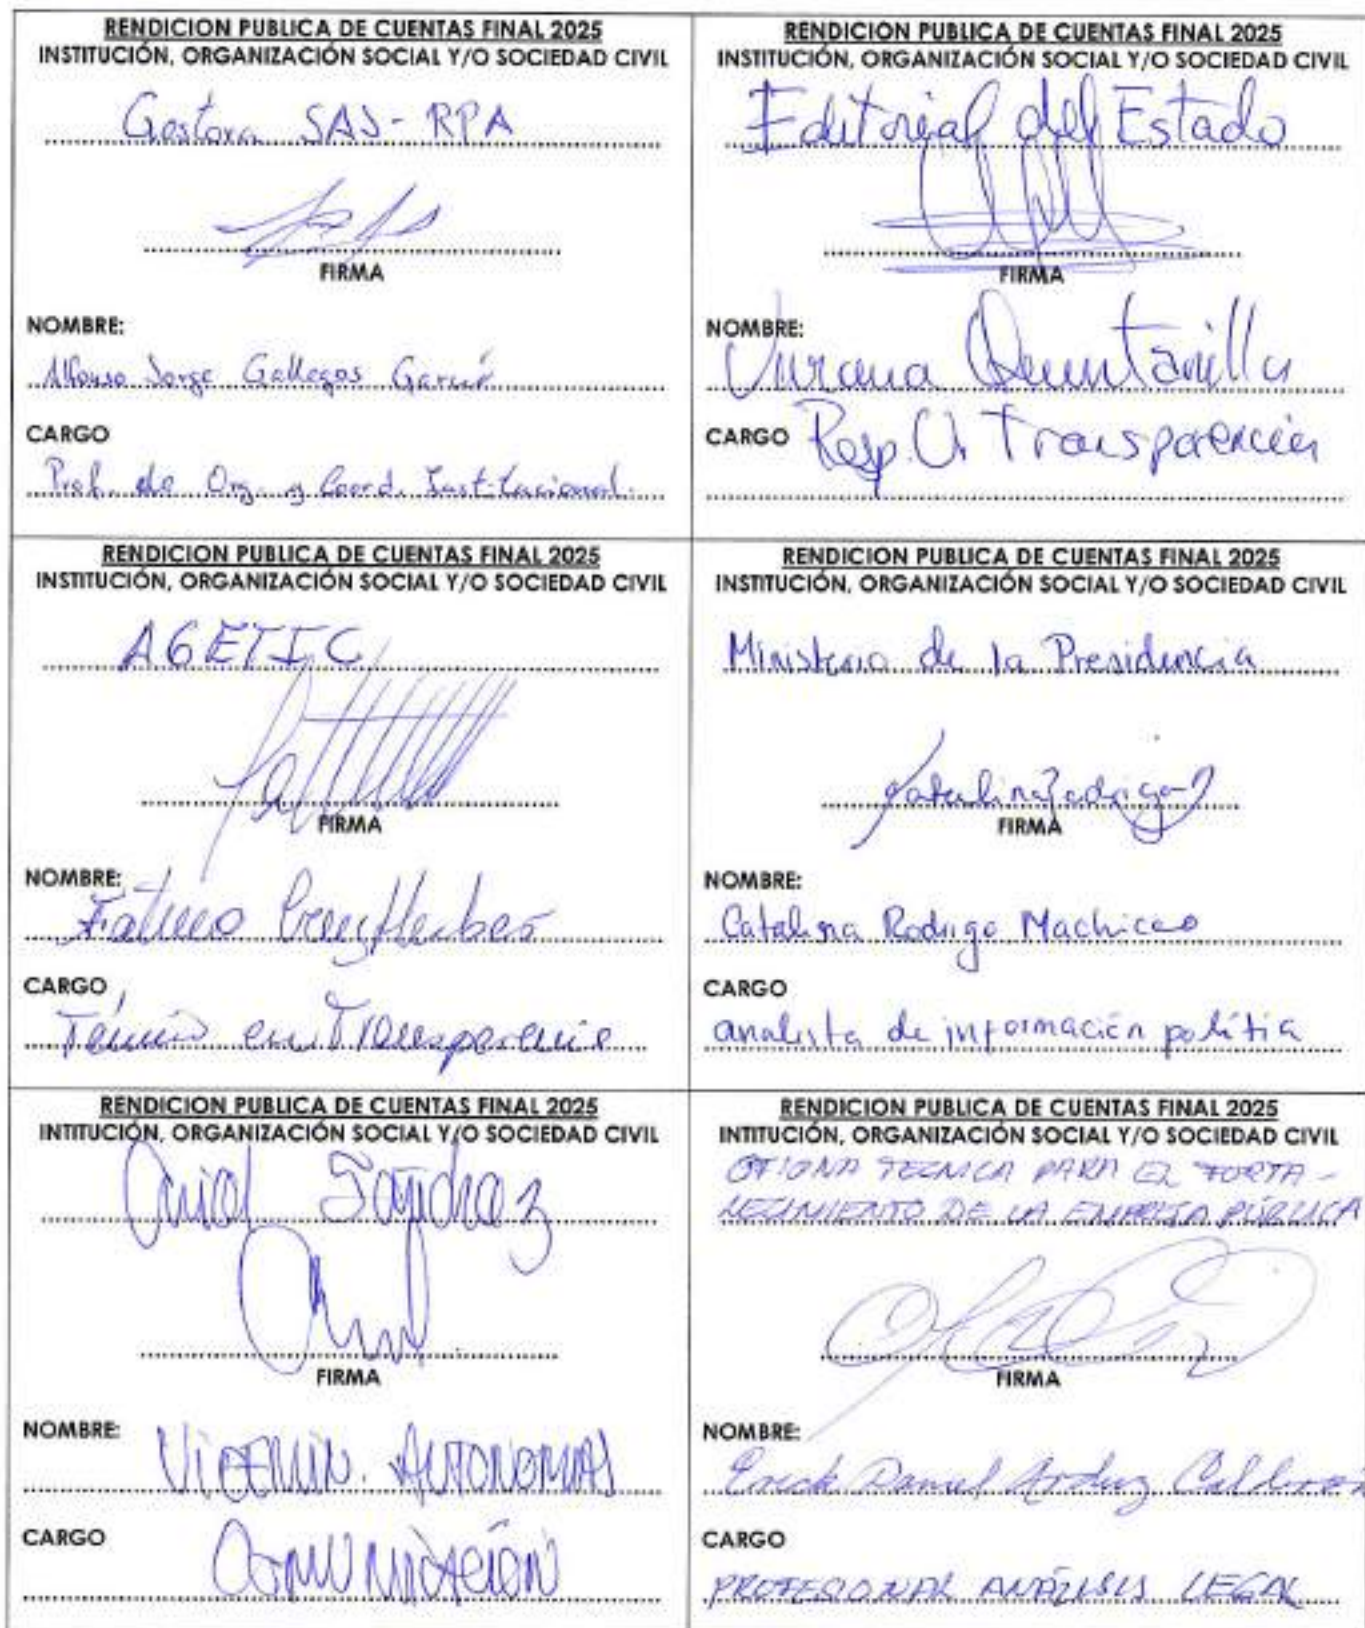 RENDICION PUBLICA DE CUENTAS FINAL 2025
INSTITUCIÓN, ORGANIZACIÓN SOCIAL Y/O SOCIEDAD CIVIL
Gestora SAS-RPA
FIRMA
NOMBRE:
Alfonso Jorge Gallegos García
CARGO
Prof. de Org. y Coord. Institucional.
RENDICION PUBLICA DE CUENTAS FINAL 2025
INSTITUCIÓN, ORGANIZACIÓN SOCIAL Y/O SOCIEDAD CIVIL
Editorial del Estado
FIRMA
NOMBRE:
Quintanilla
CARGO Resp. U. Transparencia
RENDICION PUBLICA DE CUENTAS FINAL 2025
INSTITUCIÓN, ORGANIZACIÓN SOCIAL Y/O SOCIEDAD CIVIL
AGETIC
FIRMA
NOMBRE:
CARGO
en Transparencia
RENDICION PUBLICA DE CUENTAS FINAL 2025
INSTITUCIÓN, ORGANIZACIÓN SOCIAL Y/O SOCIEDAD CIVIL
Ministerio de la Presidencia
FIRMA
NOMBRE:
Catalina Rodrigo Machicao
CARGO
analista de información polítia
RENDICION PUBLICA DE CUENTAS FINAL 2025
INTITUCIÓN, ORGANIZACIÓN SOCIAL Y/O SOCIEDAD CIVIL
FIRMA
NOMBRE:
VICEMIN. AUTONOMIAS
CARGO
COMUNICACIÓN
RENDICION PUBLICA DE CUENTAS FINAL 2025
INTITUCIÓN, ORGANIZACIÓN SOCIAL Y/O SOCIEDAD CIVIL
OFICINA TECNICA PARA EL FORTA-
LECIMIENTO DE LA EMPRESA PÚBLICA
FIRMA
NOMBRE:
Erick Daniel Arduz Calderón
CARGO
PROFESIONAL ANÁLISIS LEGAL